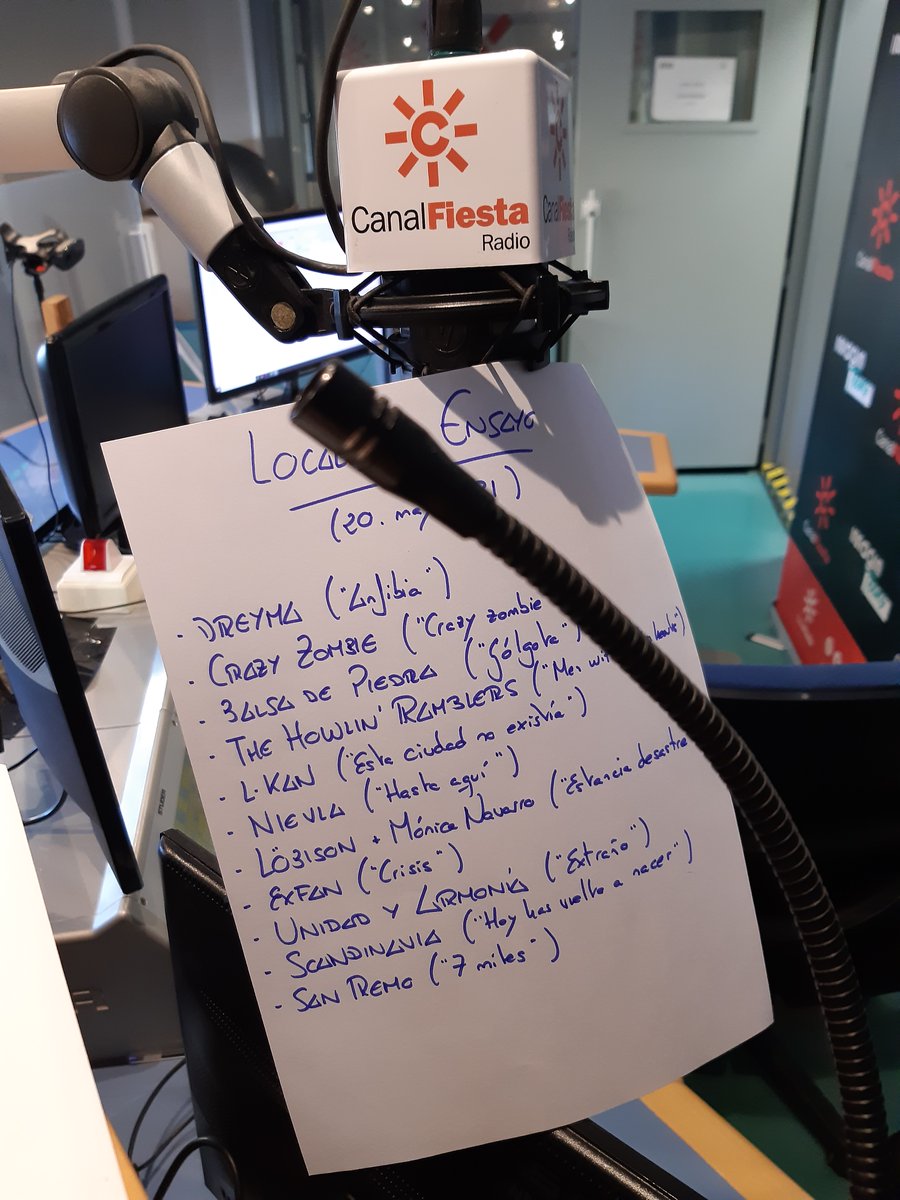 C
CanalFiesta
Radio
Ensayo
(20.
· DREYMA ("Anfibia")
· CRAZY ZOMBIE ("Crazy zombie
· BALSA DE PIEDRA ("Gólgota")
· THE HOWLIN' RAMBLERS ("Men
· L-KAN ("Esta ciudad no existía")
· NIEVLA ("Hasta aquí")
· LÖBISON + Mónica Navarro ("Estancia desastre
· EXFAN ("Crisis")
· UNIDAD Y ARMONÍA ("Extraño")
· SCANDINAVIA ("Hoy has vuelto a nacer")
· SAN REMO ("7 miles")
STUDER